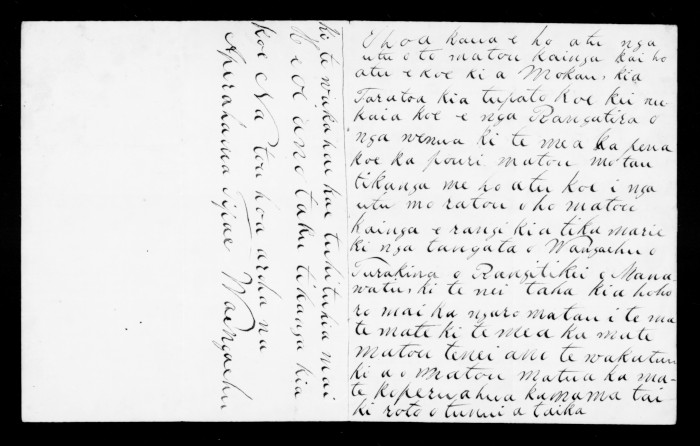 E hoa kaua e ho atu nga
utu o to matou kainga kai ho
atu e koe ki a Mokau, kia
Taratoa kia tupato koe kei nu
kaia koe e nga Rangatira o
nga wenua ki te mea ka pena
koe ka pouri matou mo tau
tikanga me ho atu koe i nga
utu mo ratou o ho matou
kainga e rangi kia tika marie
ki nga tangata o Wangaehu o
Turakina o Rangitikei o Mana
watu, ki te nei taha kia hoho
ro mai ka ngaro matau i te ma
te mate ki te mea ka mate
matou tenei ano te wakatau
ki a o matou matua ka ma-
te kamama tai
ki roto o tumu a taika
ki te wakahae hae tuhituhia mai
Heoi ano taku tikanga kia
koe Na tou hoa aroha na
Aperahama Tipae Wangaehu